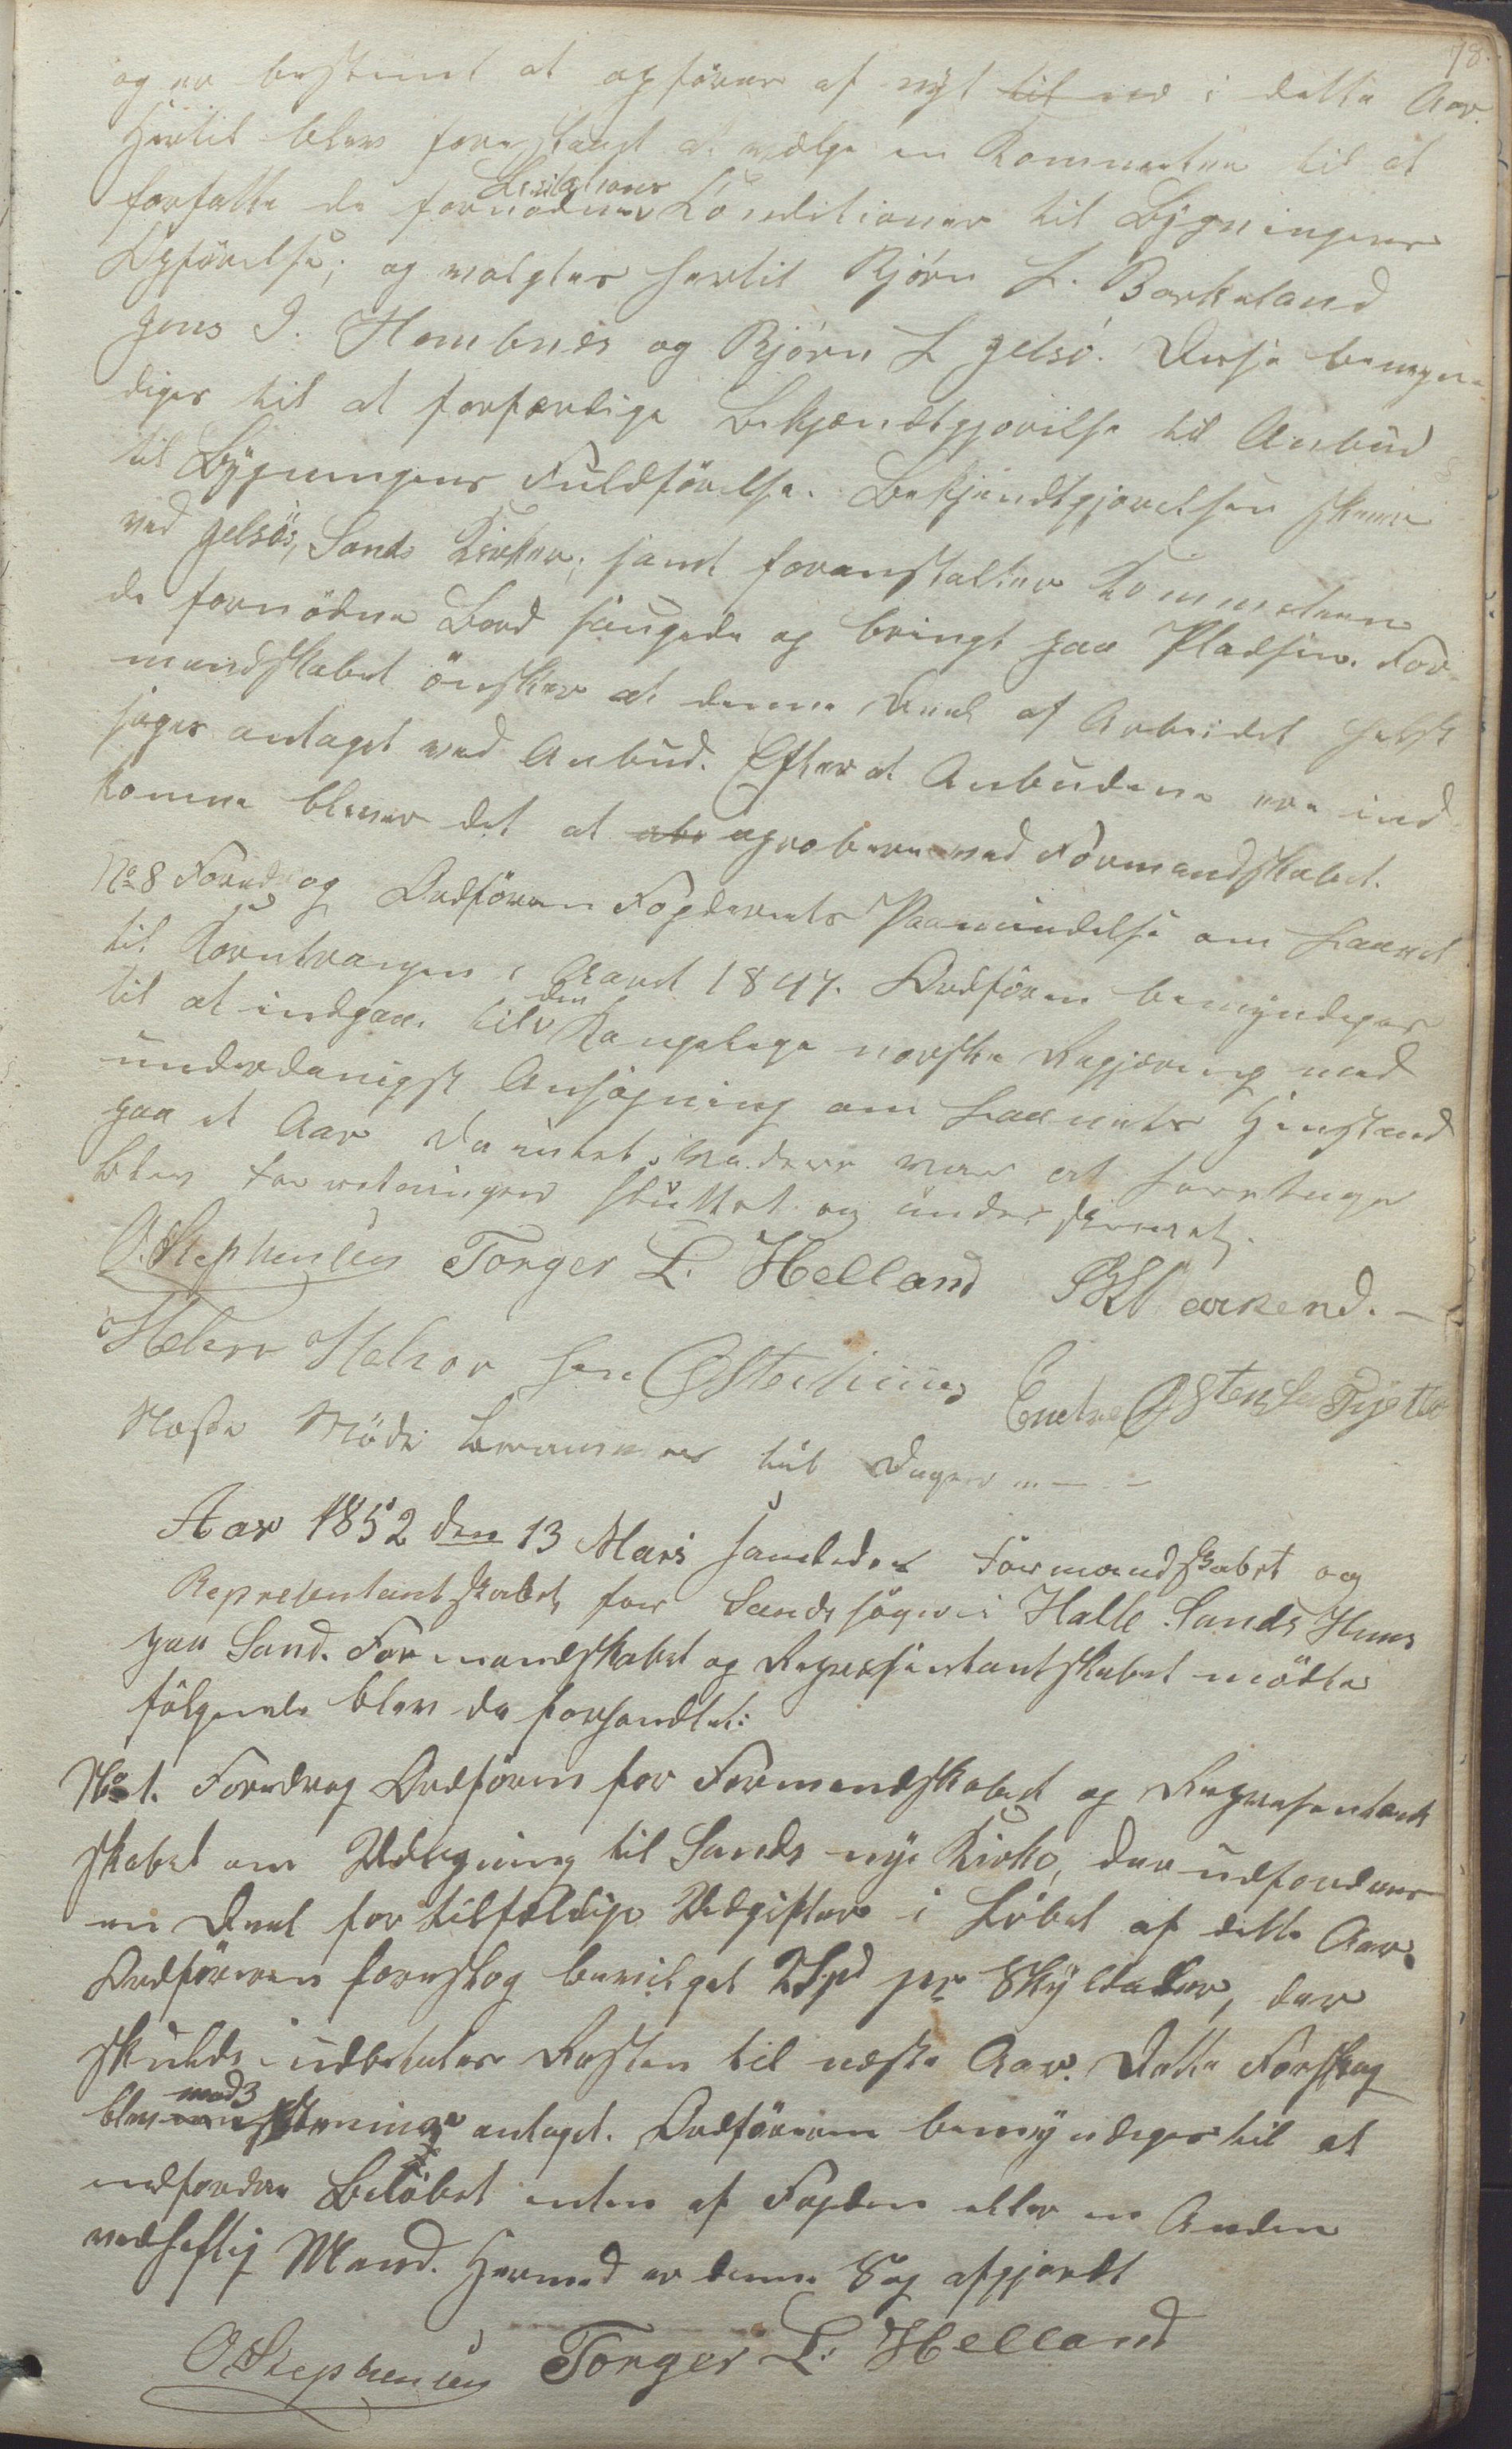 78.
og er bestemt at opføres af nyt til ved i dette Aar.
Hertil blev foreslaaet at vælge en Kommitee til at
forfatte de fornødne Licitations Konditioner til Bygningens
Opførelse; og valgtes hertil Bjørn L. Barkeland
Jens J. Hombnes og Bjørn L Jelsö. Disse bemyn-
diges til at forfærdige Bekjendtgjørelse til Anbud
til Bygningens Fuldförelse. Bekjendtgjørelsen skeer
ved Jelsös, Sands Kirker; samt foranstalter Kommeteen
de fornödne Bord saugede og bringt paa Pladsen. For-
mandskabet önsker at denne Deel af Arbeidet helst
søges antaget ved Anbud. Efter at Anbudene ere ind-
komne bliver det at abr aprobere ved Formandskabet.
No 8 Foredrog Ordföreren Fogderiets Paamindelse om Laanet
til Korntrangen i Aaret 1847. Ordföreren bemyndiges
til at indgaa til den Kongelige norske Regjering med
underdanigst Ansøgning om Laanets Henstand
paa et Aar Da intet videre var at foretage
blev Forretningen sluttet og underskrevet.
O. Stephensen Torger L. Helland
Helver Helvor sen Østerhuus Endre Østensen Tjetla
Næste Möde berammes til Dagen
Aar 1852 den 13 Mars samledes Formandskabet og
Representantskabet for Sands sogn i Halle Sands Huus
paa Sand. Formandskabet og Representantskabet mödte
fölgende blev da forhandlet:
No 1. Foredrog Ordföreren for Formandskabet og Representant
skabet om Udligning til Sands nye Kirke, der udfordres
en Deel for tilfældige Udgifter i Løbet af dette Aar.
Ordföreren foreslog bevilget 2 Spd pr Skyldaler, der
skulde udbetales Resten til næste Aar. Dette Forslag
blev med 3 Stemmer antaget. Ordföreren bemyndiges til at
udfordre Belöbet enten af Fogden eller en Anden
vedheftig Mand. Hermed er denne Sag afgjordt
O. Stephensen Torger L. Helland